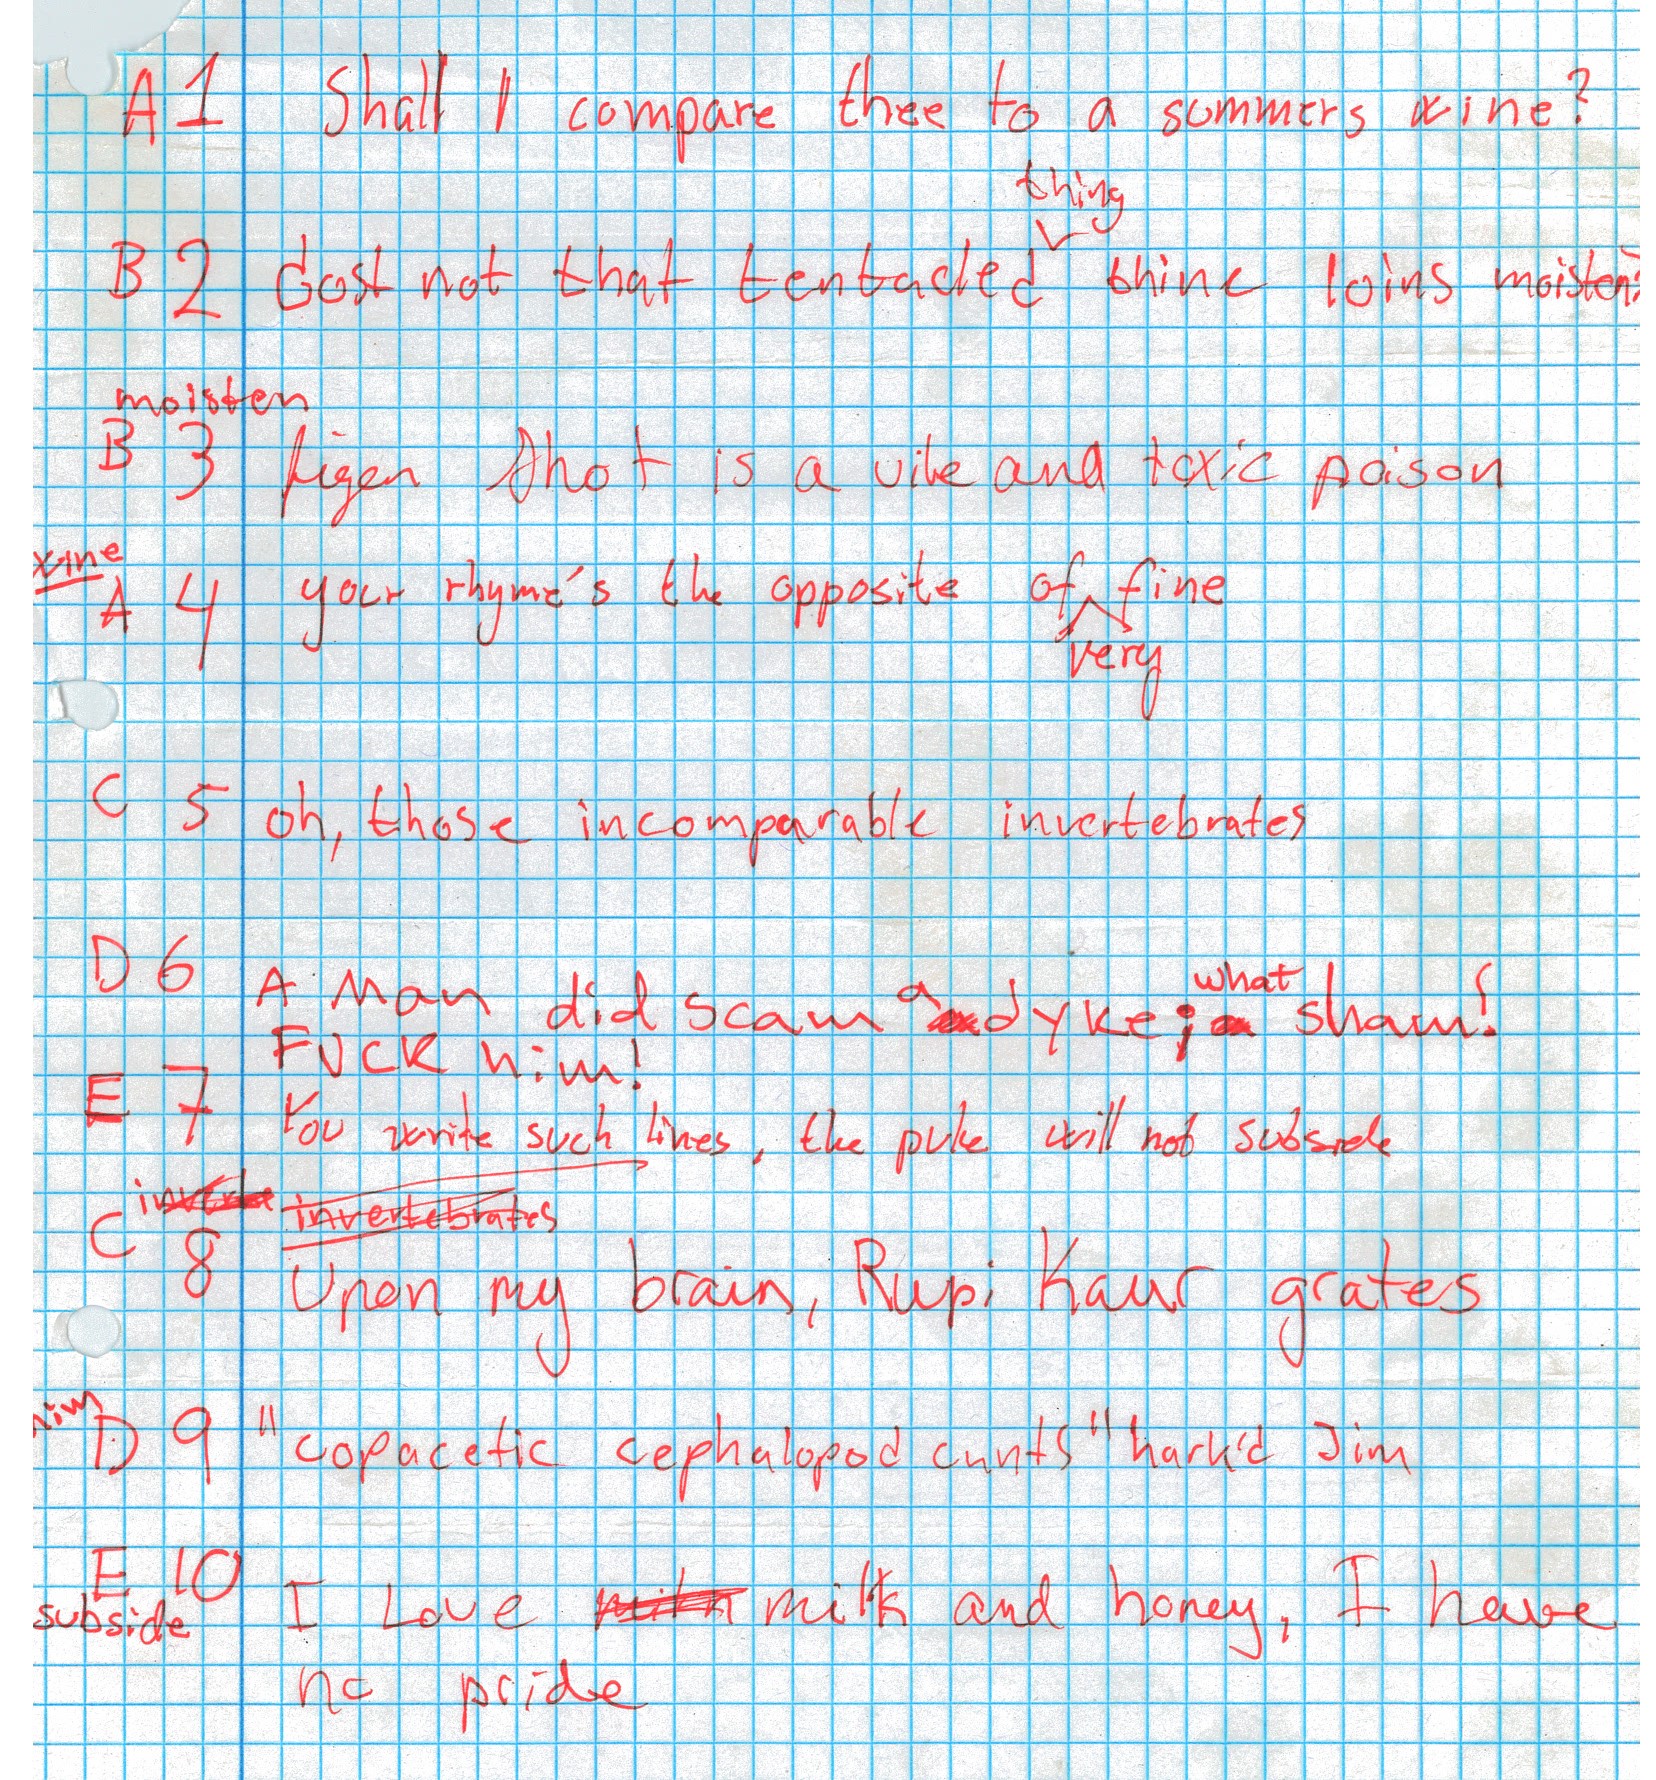 A 1 Shall I compare thee to a summers wine?
thing
B 2 dost not that tentacled thine loins moisten?
moisten
B 3 figen thot is a vile and toxic poison
wine
A 4 your rhyme's the opposite of fine
very
C 5 oh, those incomparable invertebrates
D 6 A Man did scam a dyke; what sham!
FUCK him!
E 7 You write such lines, the puke will not subside
invertebrates
C 8 Upon my brain, Rupi Kaur grates
him
D 9 "copacetic cephalopod cunts" hark'd Jim
E 10 I Love milk and honey, I have
subside
no pride